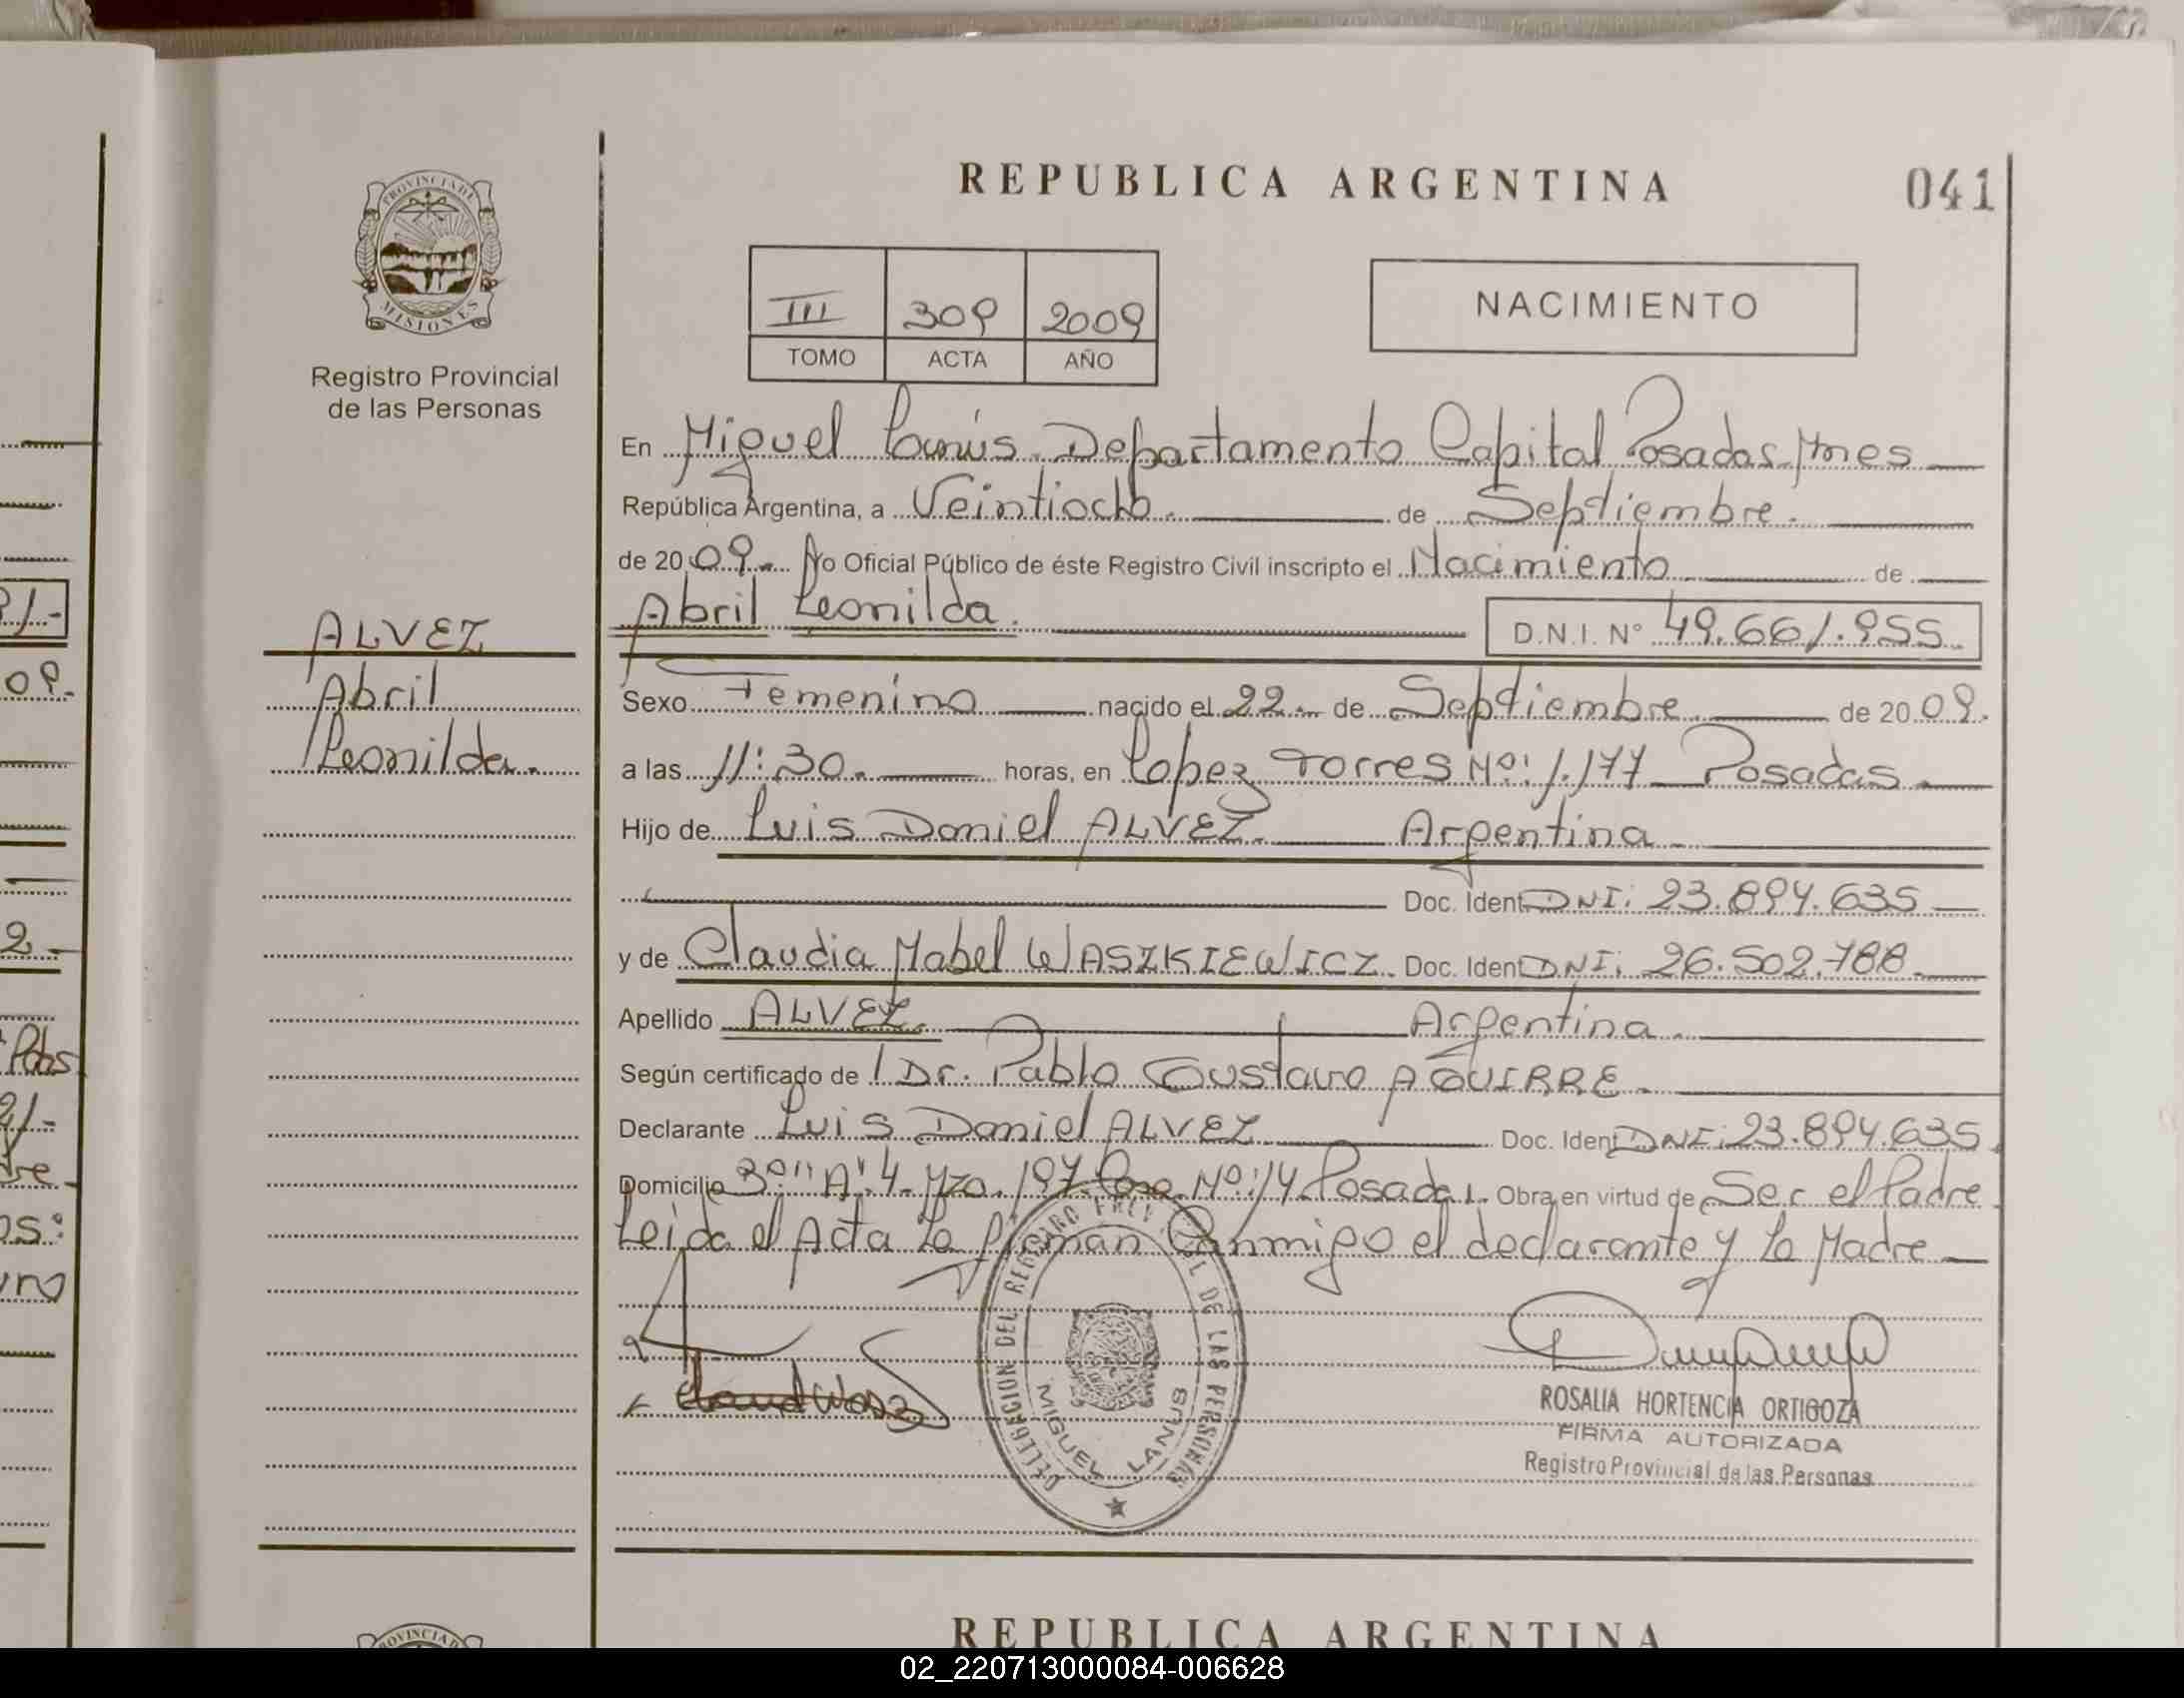 REPUBLICA ARGENTINA
041
PROVINCIA DE
MISIONES
Registro Provincial
de las Personas
III 309 2009
TOMO ACTA AÑO
NACIMIENTO
En Miguel Lanús. Departamento Capital Posadas Mnes
República Argentina, a Veintiocho. de Septiembre.
de 2009. Yo Oficial Público de éste Registro Civil inscripto el Nacimiento de
ALVEZ
Abril
Leonilda.
Abril Leonilda. D.N.I. Nº 49.661.955.
Sexo Femenino nacido el 22. de Septiembre de 2009.
a las 11:30. horas, en Lopez Torres Nº: 1.177 Posadas.
Hijo de Luis Daniel ALVEZ. Argentina.
Doc. Ident. DNI: 23.894.635
y de Claudia Mabel WASZKIEWICZ. Doc. Ident. DNI: 26.502.788.
Apellido ALVEZ. Argentina.
Según certificado de Dr. Pablo Gustavo AGUIRRE.
Declarante Luis Daniel ALVEZ Doc. Ident. DNI: 23.894.635.
Domicilio "A" 4. Mza. 197. Casa Nº: 14 Posadas. Obra en virtud de Ser el Padre.
Leida el Acta la firman Conmigo el declarante y la Madre
DELEGACION DEL REGISTRO PROVINCIAL DE LAS PERSONAS
MIGUEL LANUS
ROSALIA HORTENCIA ORTIGOZA
FIRMA AUTORIZADA
Registro Provincial de las Personas
REPUBLICA ARGENTINA
02_220713000084-006628